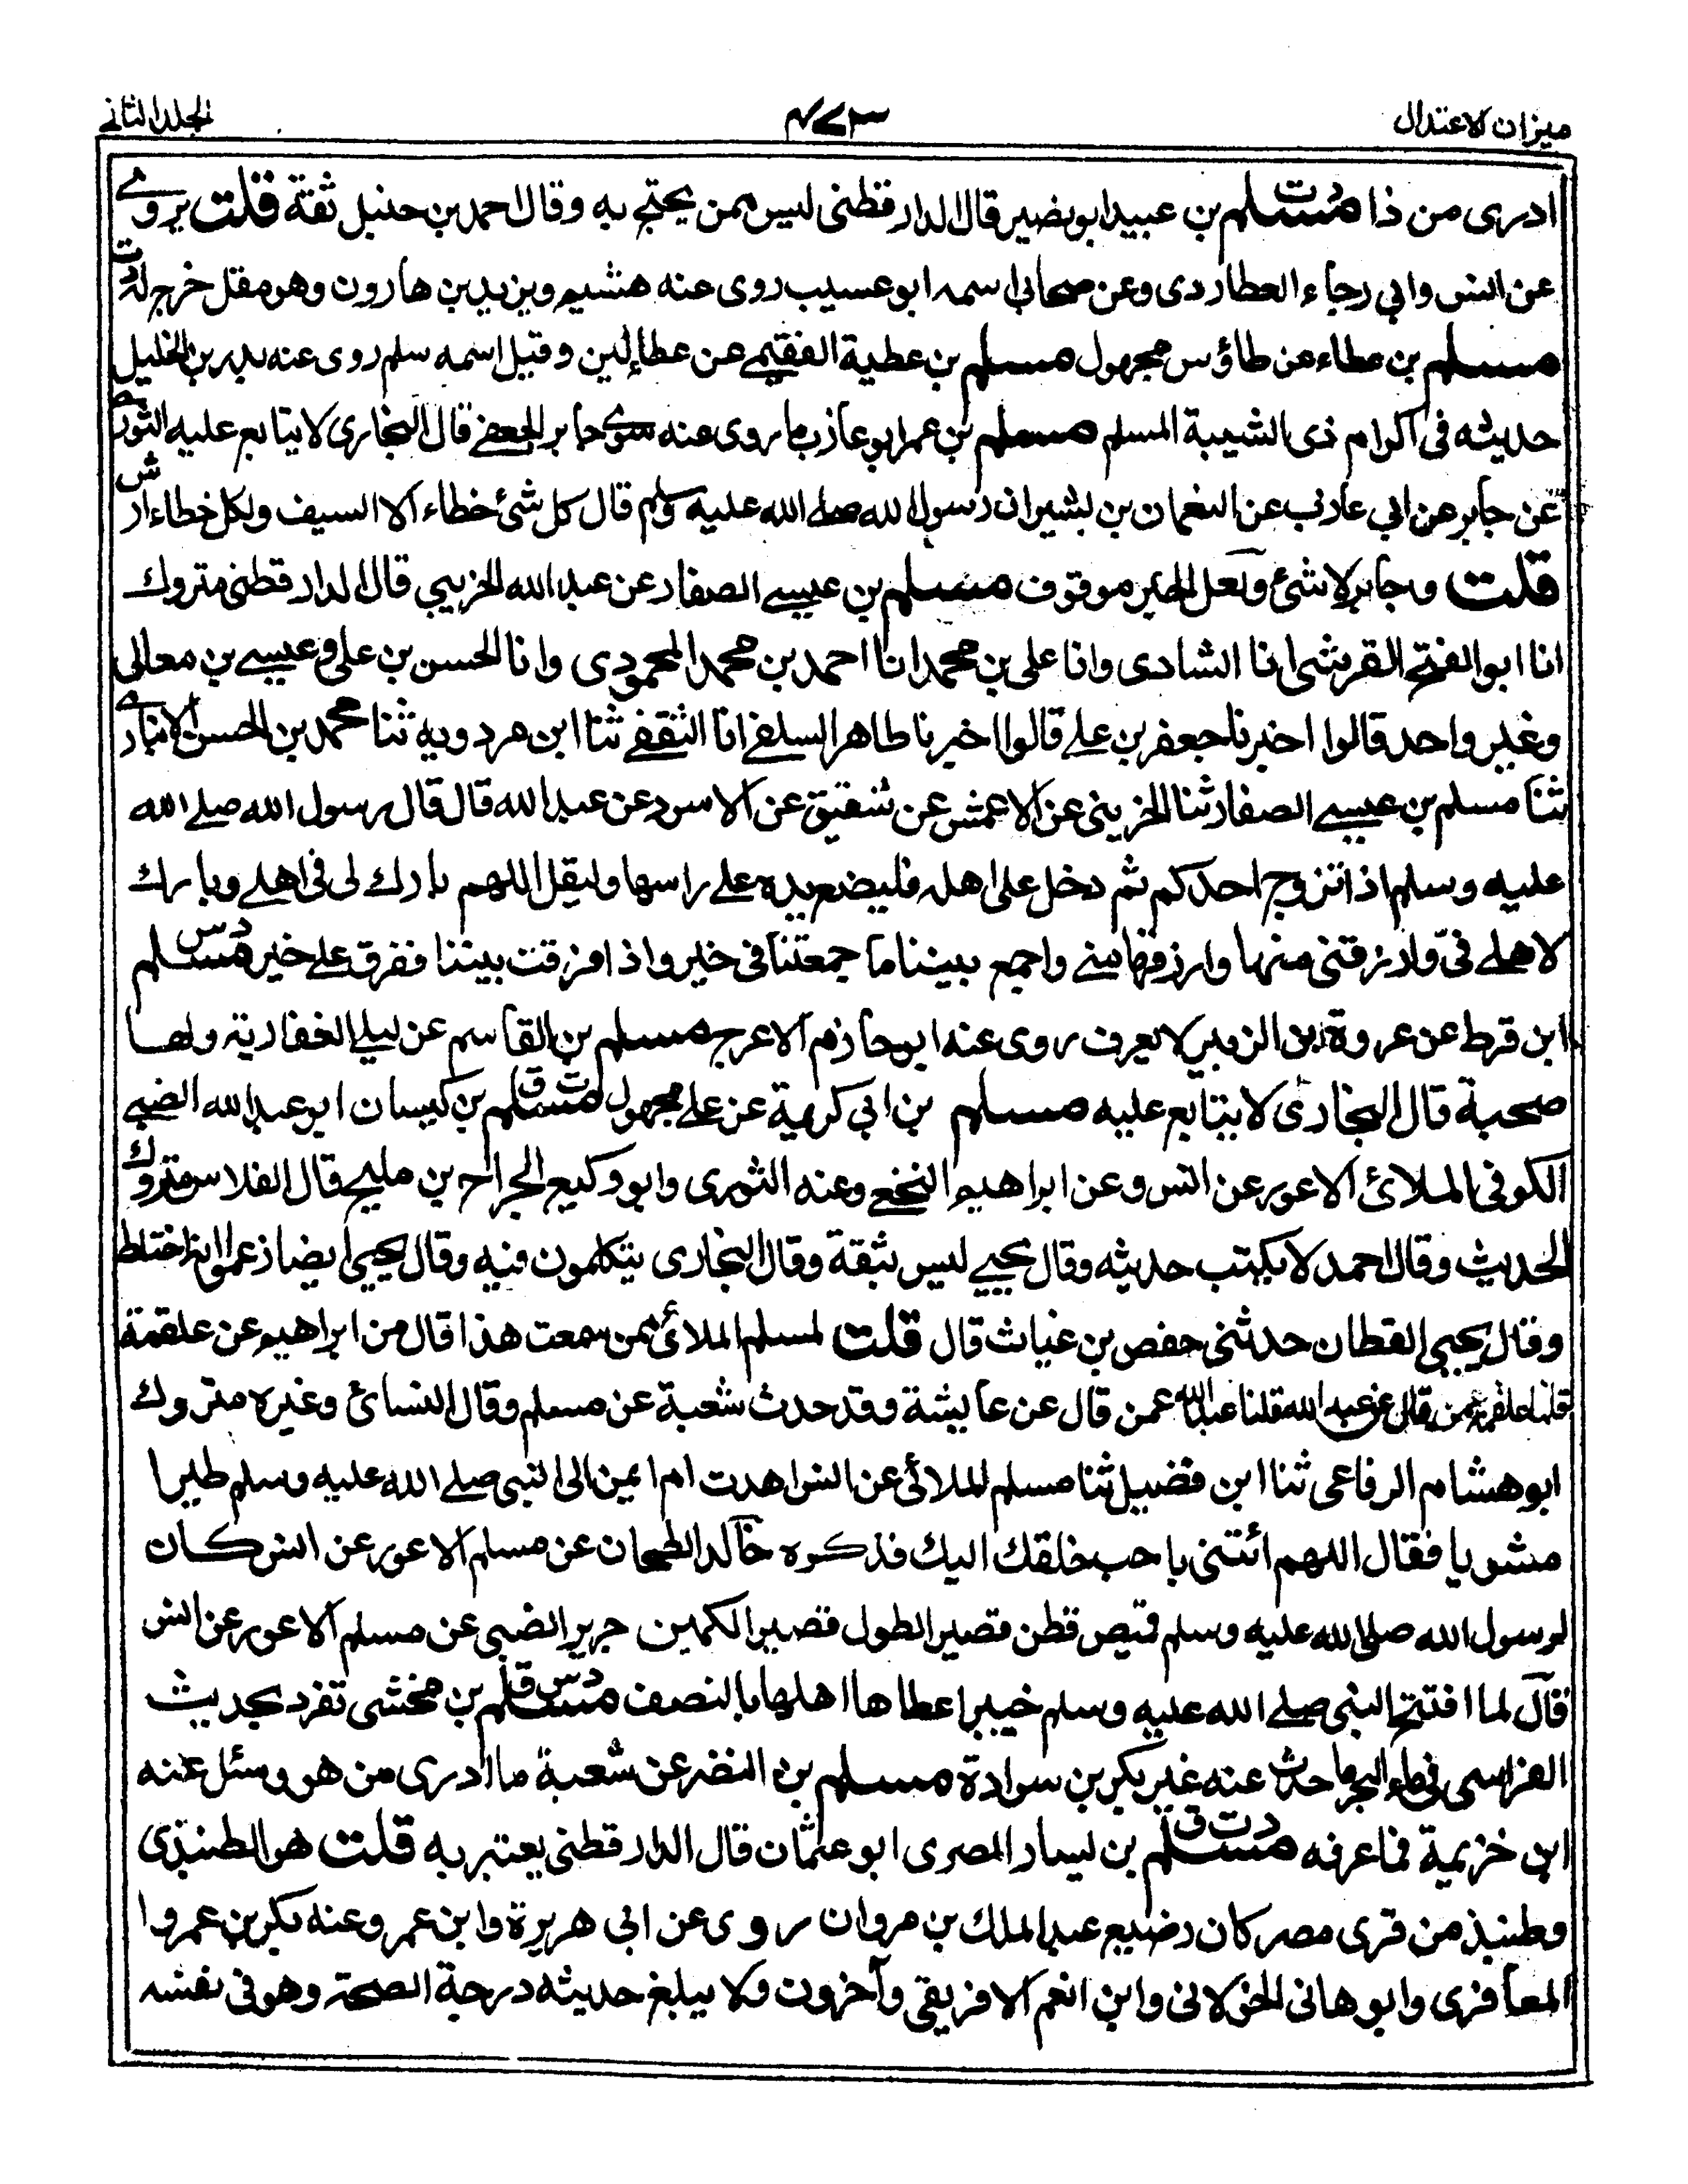 ميزان الاعتدال
٤٧٣
الجلد الثاني
ادرى من ذا مسلم د ت بن عبيد ابو نصير قال الدارقطنى ليس ممن يحتج به وقال احمد بن حنبل ثقة قلت يروى
عن انس وابي رجاء العطاردى وعن صحابي اسمه ابو عسيب روى عنه هشيم ويزيد بن هارون وهو مقل خرج له د ت
مسلم بن عطاء عن طاؤس مجهول مسلم بن عطية الفقيمى عن عطا لين وقيل اسمه سلم روى عنه بدر بن الخليل
حديثه فى اكرام ذى الشيبة المسلم مسلم بن عمر ابو عازب ما روى عنه سوى جابر الجعفى قال البخارى لا يتابع عليه الثورى
عن جابر عن ابي عازب عن النعمان بن بشير ان رسول الله صلى الله عليه وسلم قال كل شئ خطاء الا السيف ولكل خطاء ارش
قلت وجابر لا شئ ولعل الخبر موقوف مسلم بن عيسى الصفار عن عبد الله الخريبي قال الدارقطنى متروك
انا ابو الفتح القرشى انا الشادى وانا على بن محمد انا احمد بن محمد المحمودى وانا الحسن بن على وعيسى بن معالى
وغير واحد قالوا اخبرنا جعفر بن على قالوا اخبرنا طاهر السلفى انا الثقفى ثنا ابن مردويه ثنا محمد بن الحسن الانبارى
ثنا مسلم بن عيسى الصفار ثنا الخريبى عن الاعمش عن شقيق عن الاسود عن عبد الله قال قال رسول الله صلى الله
عليه وسلم اذا تزوج احدكم ثم دخل على اهله فليضع يده على راسها وليقل اللهم بارك لى فى اهلى وبارك
لاهلى فىّ وارزقنى منها وارزقها منى واجمع بيننا ما جمعتنا فى خير واذا افرقت بيننا ففرق على خير مسلم د س
ابن قرط عن عروة ابن الزبير لا يعرف روى عنه ابو حازم الاعرج مسلم بن القاسم عن ليلى الغفارية ولها
صحبة قال البخارى لا يتابع عليه مسلم بن ابى كريمة عن على مجهول مسلم ت ق بن كيسان ابو عبد الله الضبى
الكوفى الملائى الاعور عن انس وعن ابراهيم النخعى وعنه الثورى وابو وكيع الجراح بن مليح قال الفلاس متروك
الحديث وقال احمد لا يكتب حديثه وقال يحيى ليس بثقة وقال البخارى يتكلمون فيه وقال يحيى ايضا زعموا انه اختلط
وقال يحيى القطان حدثنى حفص بن غياث قال قلت لمسلم الملائى ممن سمعت هذا قال من ابراهيم عن علقمة
قلنا علقمة عمن قال عن عبد الله قلنا عبد الله عمن قال عن عايشة وقد حدث شعبة عن مسلم وقال النسائ وغيره متروك
ابو هشام الرفاعى ثنا ابن فضيل ثنا مسلم الملائى عن انس اهدت ام ايمن الى النبى صلى الله عليه وسلم طيرا
مشويا فقال اللهم ائتنى باحب خلقك اليك فذكره خالد الطحان عن مسلم الاعور عن انس كان
لرسول الله صلى الله عليه وسلم قميص قطن قصير الطول قصير الكمين جرير الضبى عن مسلم الاعور عن انس
قال لما افتتح النبى صلى الله عليه وسلم خيبر اعطاها اهلها بالنصف مسلم د س ق بن مخشى تفرد بحديث
الفراسى فى ماء البحر ما حدث عنه غير بكر بن سوادة مسلم بن النضر عن شعبة ما ادرى من هو وسئل عنه
ابن خزيمة فما عرفه مسلم د ت ق بن يسار المصرى ابو عثمان قال الدارقطنى يعتبر به قلت هو الطنبذى
وطنبذ من قرى مصر كان رضيع عبد الملك بن مروان روى عن ابى هريرة وابن عمر وعنه بكر بن عمرو ا
المعافرى وابو هانى الخولانى وابن انعم الافريقى وآخرون ولا يبلغ حديثه درجة الصحة وهو فى نفسه